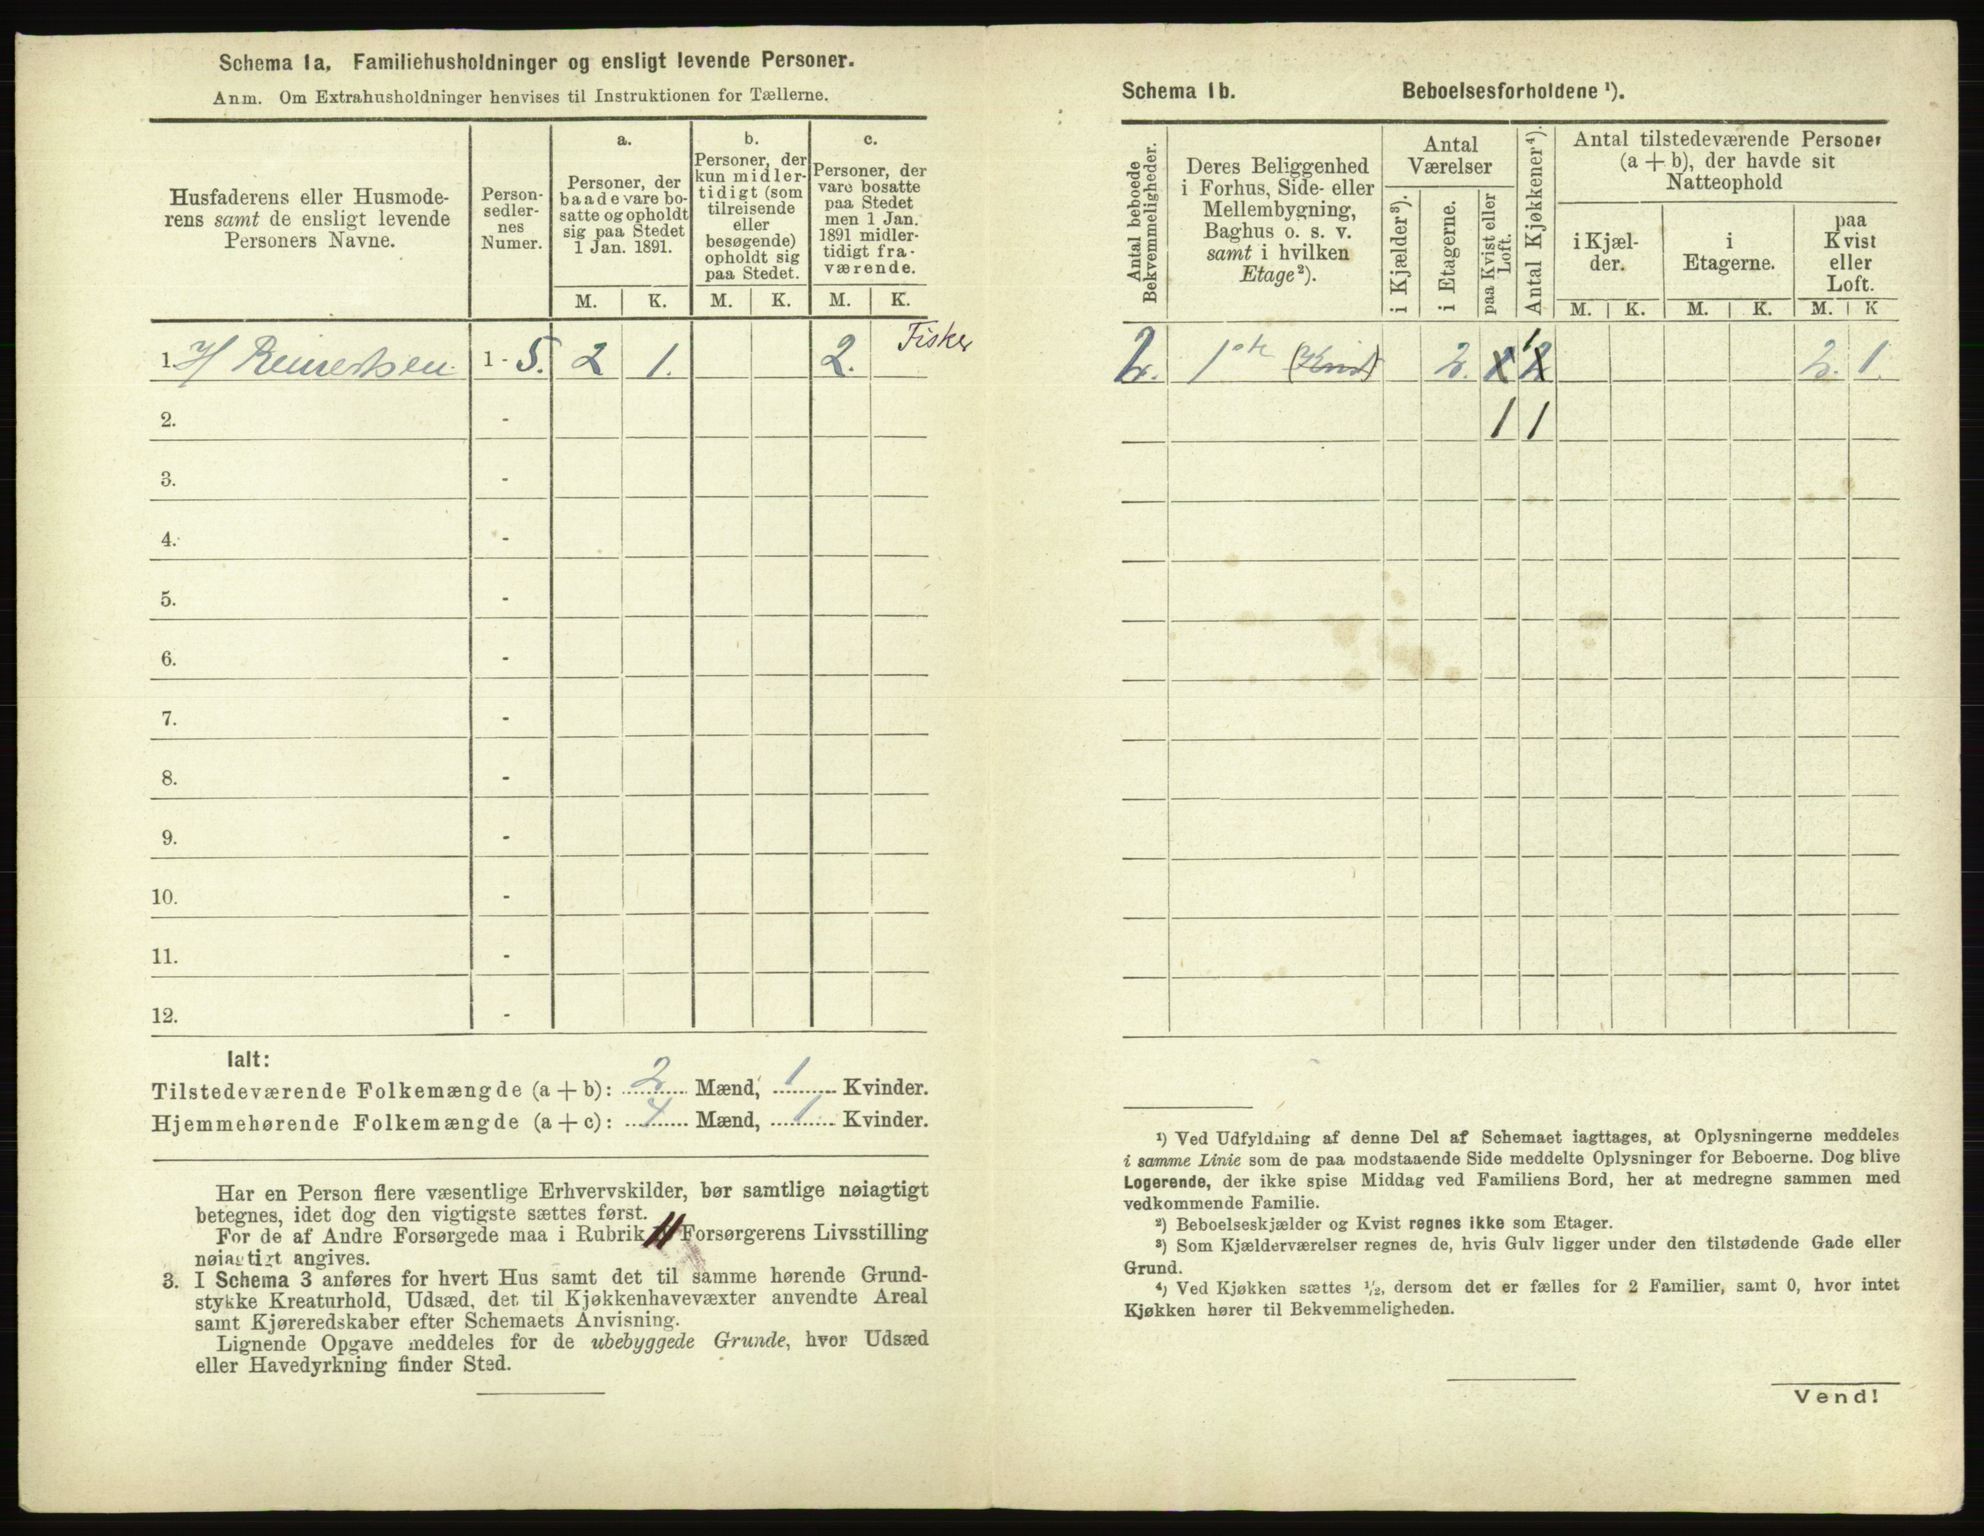 Schema 1a. Familiehusholdninger og ensligt levende Personer.
Anm. Om Extrahusholdninger henvises til Instruktionen for Tællerne.
Husfaderens eller Husmode-
rens samt de ensligt levende
Personers Navne.
Person-
sedler-
nes
Numer.
a.
Personer, der
baade vare bo-
satte og opholdt
sig paa Stedet
1 Jan. 1891.
b.
Personer, der
kun midler-
tidigt (som
tilreisende
eller
besøgende)
opholdt sig
paa Stedet.
c.
Personer, der
vare bosatte
paa Stedet
men 1 Jan.
1891 midler-
tidigt fra-
værende.
M. K. M. K. M. K.
1. H Reinertsen 1 - 5. 2 1. 2. Fisker
2. -
3. -
4. -
5. -
6. -
7. -
8. -
9. -
10. -
11. -
12. -
Ialt:
Tilstedeværende Folkemængde (a + b): 2 Mænd, 1 Kvinder.
Hjemmehørende Folkemængde (a + c): 4 Mænd, 1 Kvinder.
Har en Person flere væsentlige Erhvervskilder, bør samtlige nøiagtigt
betegnes, idet dog den vigtigste sættes først.
For de af Andre Forsørgede maa i Rubrik 11 Forsørgerens Livsstilling
nøiagtigt angives.
3. I Schema 3 anføres for hvert Hus samt det til samme hørende Grund-
stykke Kreaturhold, Udsæd, det til Kjøkkenhavevæxter anvendte Areal
samt Kjøreredskaber efter Schemaets Anvisning.
Lignende Opgave meddeles for de ubebyggede Grunde, hvor Udsæd
eller Havedyrkning finder Sted.
Schema 1b. Beboelsesforholdene ¹).
Antal beboede
Bekvemmeligheder.
Deres Beliggenhed
i Forhus, Side- eller
Mellembygning,
Baghus o. s. v.
samt i hvilken
Etage²).
Antal
Værelser
i Kjælder³).
i Etagerne.
paa Kvist eller
Loft.
Antal Kjøkkener⁴).
Antal tilstedeværende Personer
(a + b), der havde sit
Natteophold
i Kjæl-
der.
i
Etagerne.
paa
Kvist
eller
Loft.
M. K. M. K. M. K
2. 1ste (Kvist) 2. 1 2 1 2. 1.
1 1
¹) Ved Udfyldning af denne Del af Schemaet iagttages, at Oplysningerne meddeles
i samme Linie som de paa modstaaende Side meddelte Oplysninger for Beboerne. Dog blive
Logerende, der ikke spise Middag ved Familiens Bord, her at medregne sammen med
vedkommende Familie.
²) Beboelseskjælder og Kvist regnes ikke som Etager.
³) Som Kjælderværelser regnes de, hvis Gulv ligger under den tilstødende Gade eller
Grund.
⁴) Ved Kjøkken sættes ½, dersom det er fælles for 2 Familier, samt 0, hvor intet
Kjøkken hører til Bekvemmeligheden.
Vend!